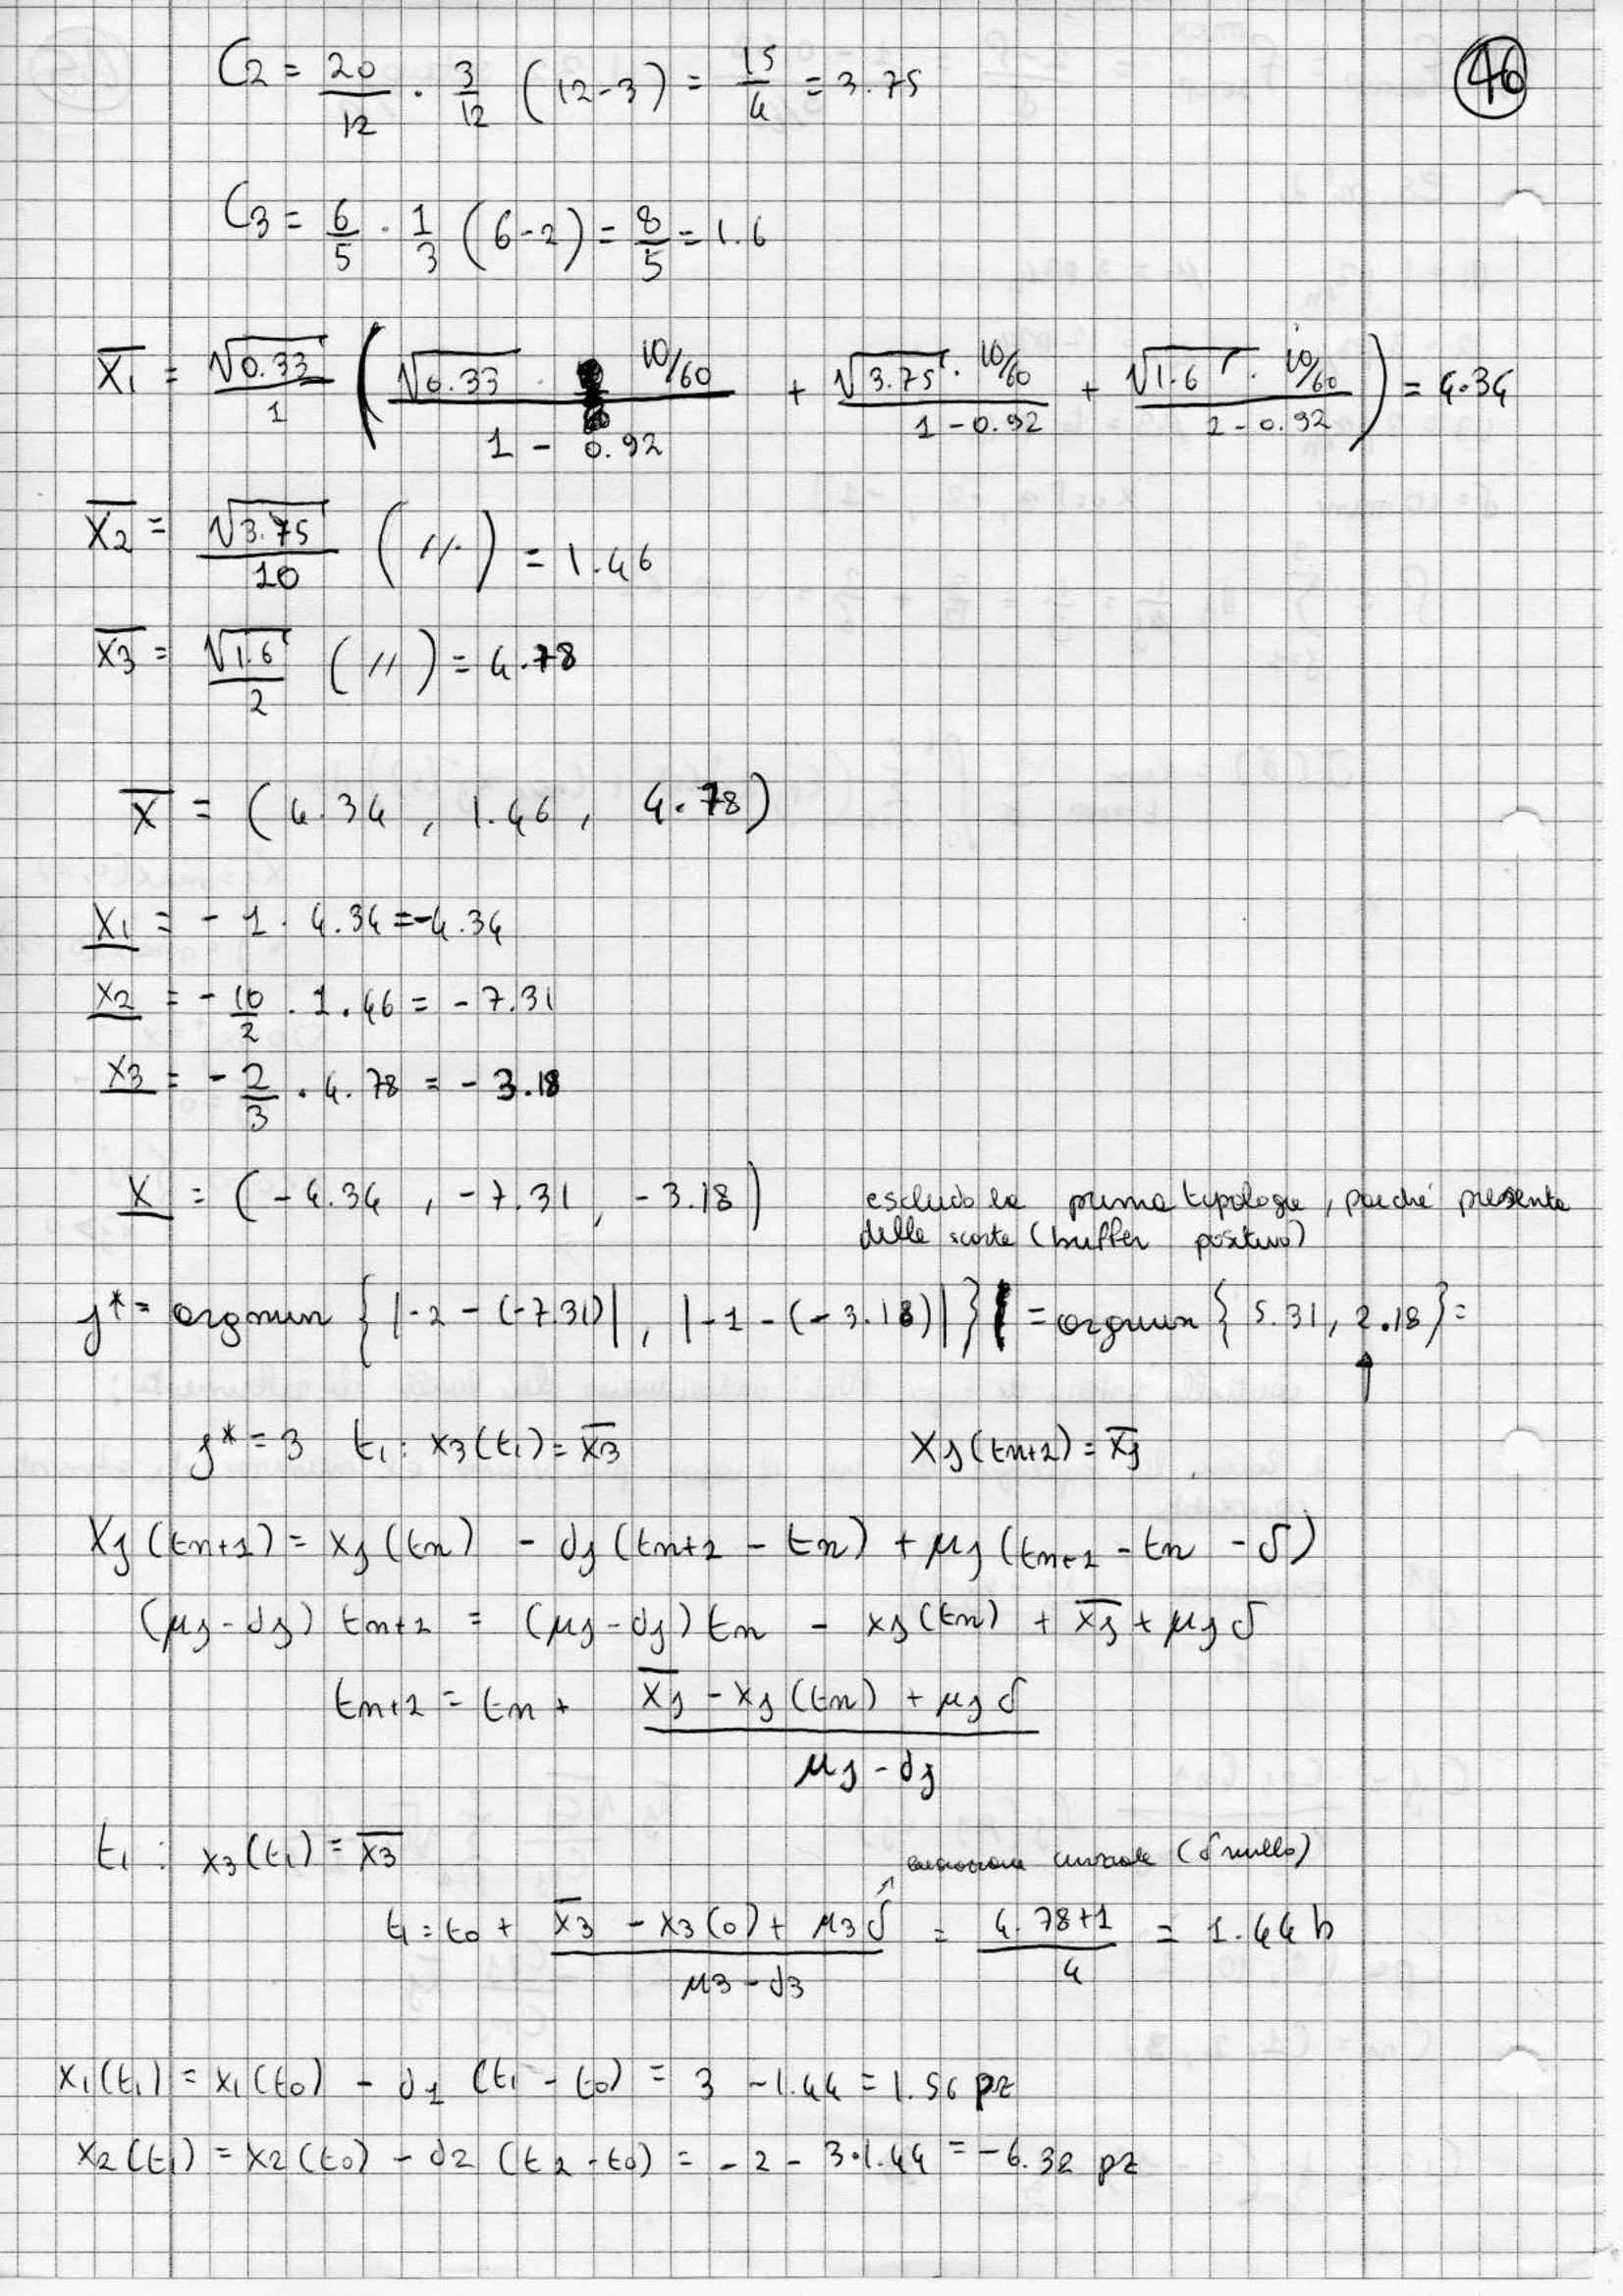 46
C2 = 20/12 · 3/12 (12-3) = 15/4 = 3.75
C3 = 6/5 · 1/3 (6-2) = 8/5 = 1.6
X̅1 = √0.33/1 ( √0.33 · 10/60 / 1 - 0.92 + √3.75 · 10/60 / 1 - 0.92 + √1.6 · 10/60 / 1 - 0.92 ) = 4.34
X̅2 = √3.75/10 ( // ) = 1.46
X̅3 = √1.6/2 ( // ) = 4.78
X̅ = (4.34 , 1.46 , 4.78)
X1 = - 1 · 4.34 = -4.34
X2 = - 10/2 · 1.46 = - 7.31
X3 = - 2/3 · 4.78 = - 3.18
X = ( - 4.34 , - 7.31 , - 3.18 ) escludo la prima tipologia, poiché presente
delle scorte (buffer positivo)
J* = argmin { |-2 - (-7.31)| , |-1 - (-3.18)| } = argmin { 5.31, 2.18 } =
↑
J* = 3 t1 : x3(t1) = x̅3 XJ(tn+1) = X̅J
XJ(tn+1) = XJ(tn) - dJ(tn+1 - tn) + μJ(tn+1 - tn - δ)
(μJ - dJ) tn+1 = (μJ - dJ) tn - xJ(tn) + x̅J + μJ δ
tn+1 = tn + x̅J - xJ(tn) + μJ δ / μJ - dJ
t1 : x3(t1) = x̅3 iniziale (δ nullo)
t1 = t0 + x̅3 - x3(0) + μ3 δ / μ3 - d3 = 4.78+1 / 4 = 1.44 h
x1(t1) = x1(t0) - d1 (t1 - t0) = 3 - 1.44 = 1.56 pz
x2(t1) = x2(t0) - d2 (t1 - t0) = - 2 - 3·1.44 = -6.32 pz